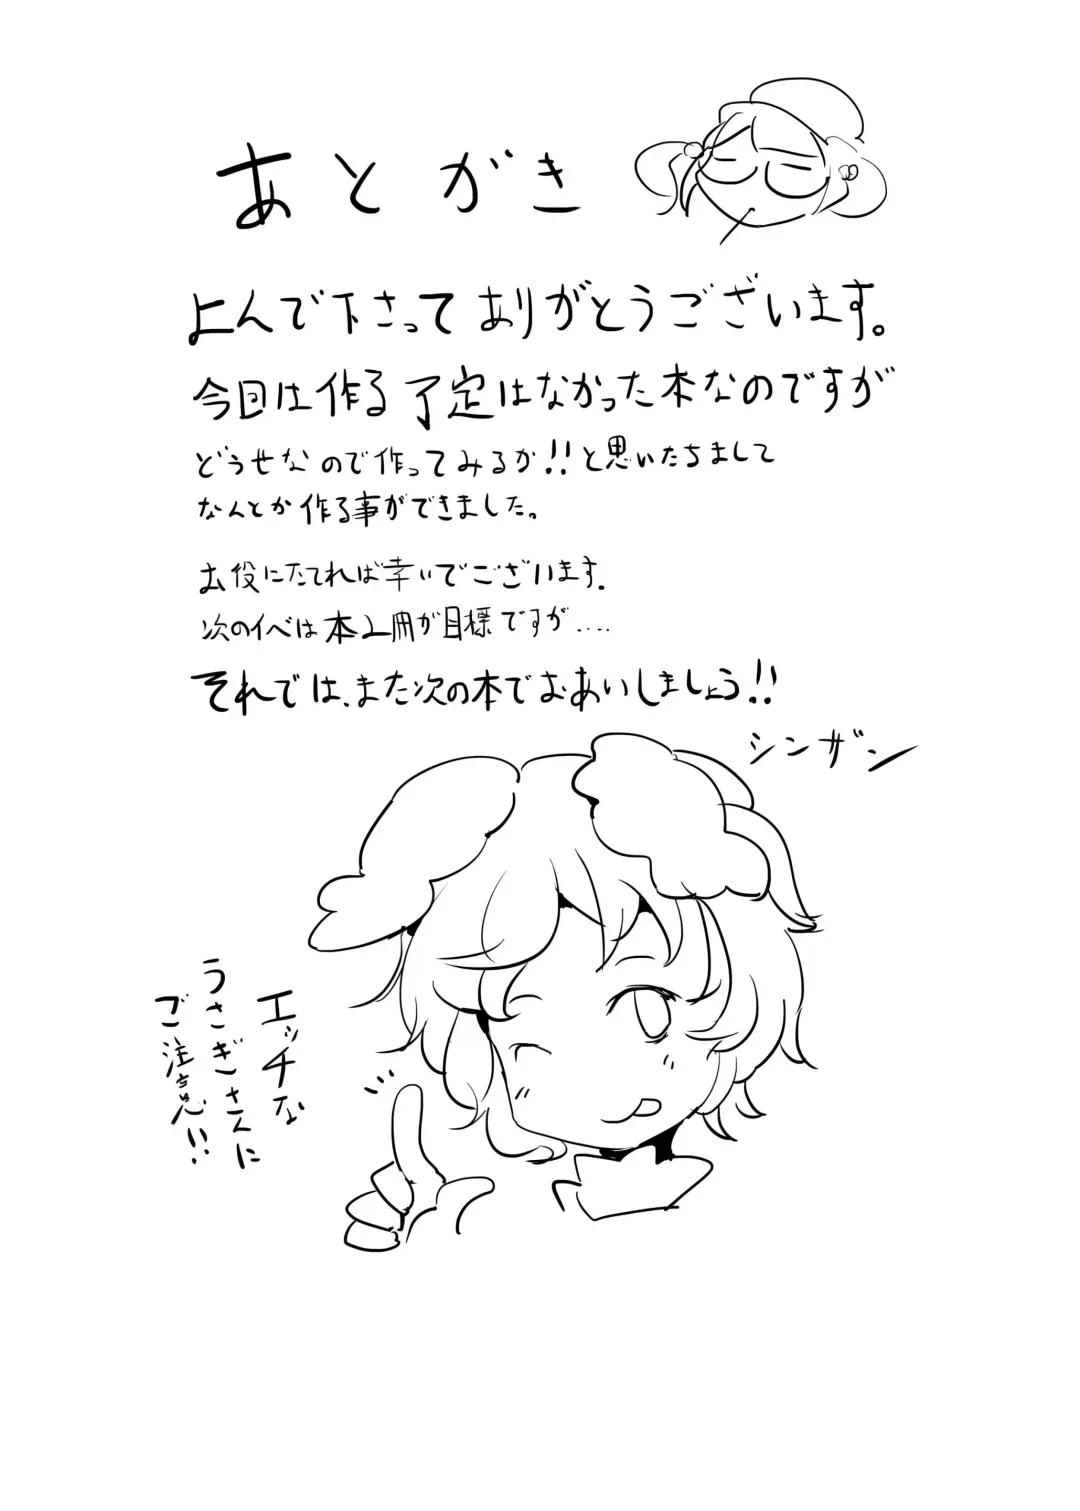 あとがき
よんで下さってありがとうございます。
今回は作る予定はなかった本なのですが
どうせなので作ってみるか!!と思いたちまして
なんとか作る事ができました。
お役にたてれば幸いでございます.
次のイベは本2冊が目標ですが....
それでは、また次の本でおあいしましょう!!
シンザン
エッチな
うさぎさんに
ご注意!!